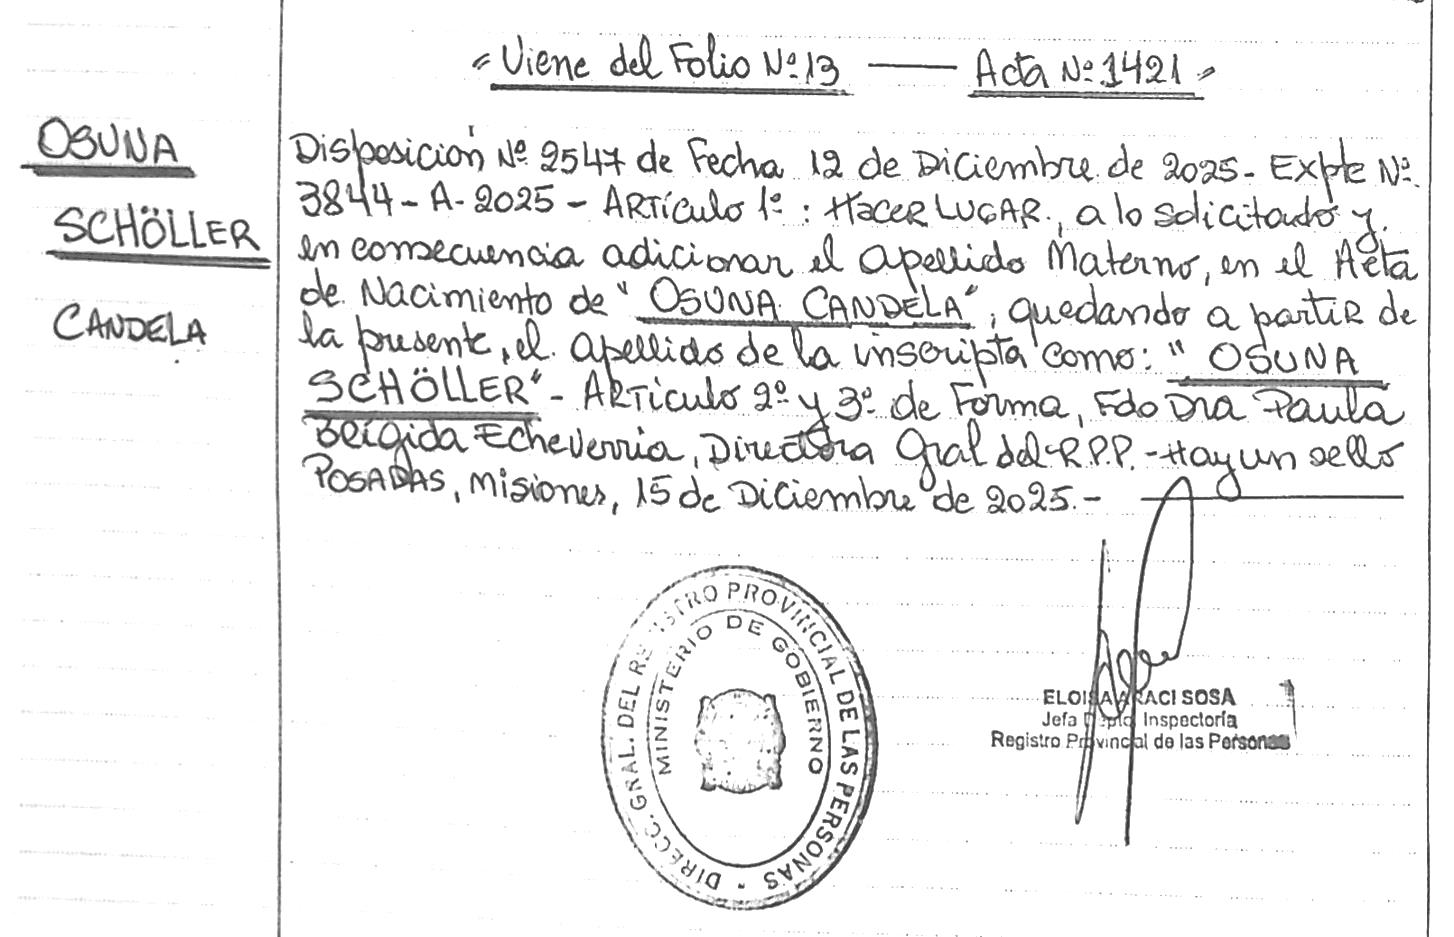 "Viene del Folio Nº 13 — Acta Nº 1421"
OSUNA
SCHÖLLER
CANDELA
Disposición Nº 2547 de Fecha 12 de Diciembre de 2025- Expte Nº
3844-A-2025 - Artículo 1º: HACER LUGAR, a lo solicitado y
en consecuencia adicionar el apellido Materno, en el Acta
de Nacimiento de "OSUNA CANDELA", quedando a partir de
la presente, el apellido de la inscripta como: "OSUNA
SCHÖLLER"- Artículo 2º y 3º de Forma, Fdo Dra Paula
Brígida Echeverria, Directora Gral del R.P.P.- Hay un sello
POSADAS, Misiones, 15 de Diciembre de 2025.-
DIRECC. GRAL. DEL REGISTRO PROVINCIAL DE LAS PERSONAS
MINISTERIO DE GOBIERNO
ELOISA ARACI SOSA
Jefa Dpto. Inspectoría
Registro Provincial de las Personas